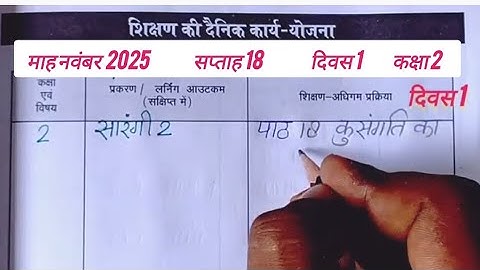 शिक्षण की दैनिक कार्य-योजना
माह नवंबर 2025 सप्ताह 18 दिवस 1 कक्षा 2
कक्षा एवं विषय
प्रकरण / लर्निंग आउटकम (संक्षिप्त में)
शिक्षण-अधिगम प्रक्रिया
दिवस 1
2 सारंगी 2 पाठ 18 कुसंगति का